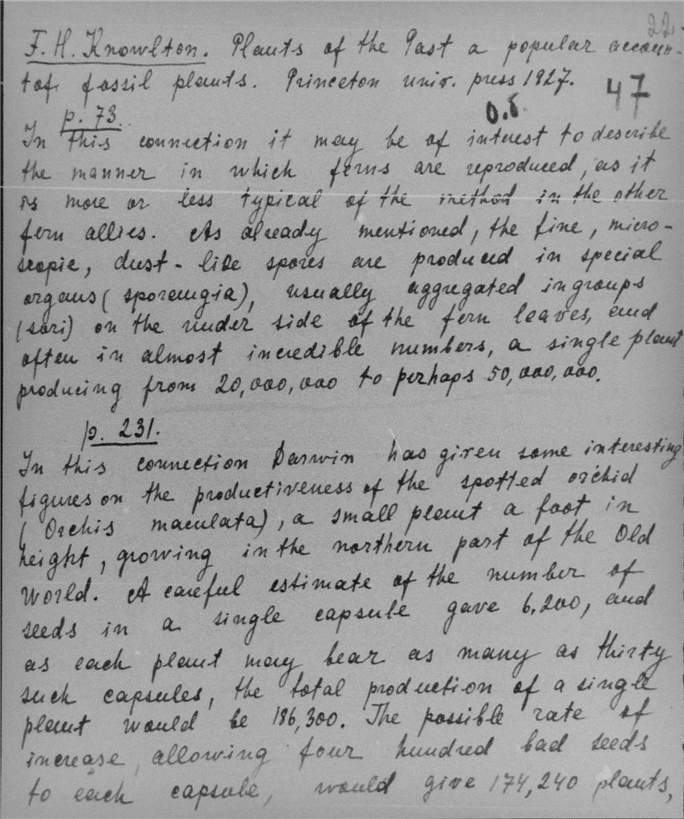 22
F. H. Knowlton. Plants of the Past a popular accoun-
t of fossil plants. Princeton univ. press 1927.
47
p. 73.
0.5.
In this connection it may be of interest to describe
the manner in which ferns are reproduced, as it
is more or less typical of the method in the other
fern allies. As already mentioned, the fine, micro-
scopic, dust-like spores are produced in special
organs (sporangia), usually aggregated in groups
(sori) on the under side of the fern leaves, and
often in almost incredible numbers, a single plant
producing from 20,000,000 to perhaps 50,000,000.
p. 231.
In this connection Darwin has given some interesting
figures on the productiveness of the spotted orchid
(Orchis maculata), a small plant a foot in
height, growing in the northern part of the Old
World. A careful estimate of the number of
seeds in a single capsule gave 6,200, and
as each plant may bear as many as thirty
such capsules, the total production of a single
plant would be 186,300. The possible rate of
increase, allowing four hundred bad seeds
to each capsule, would give 174,240 plants,